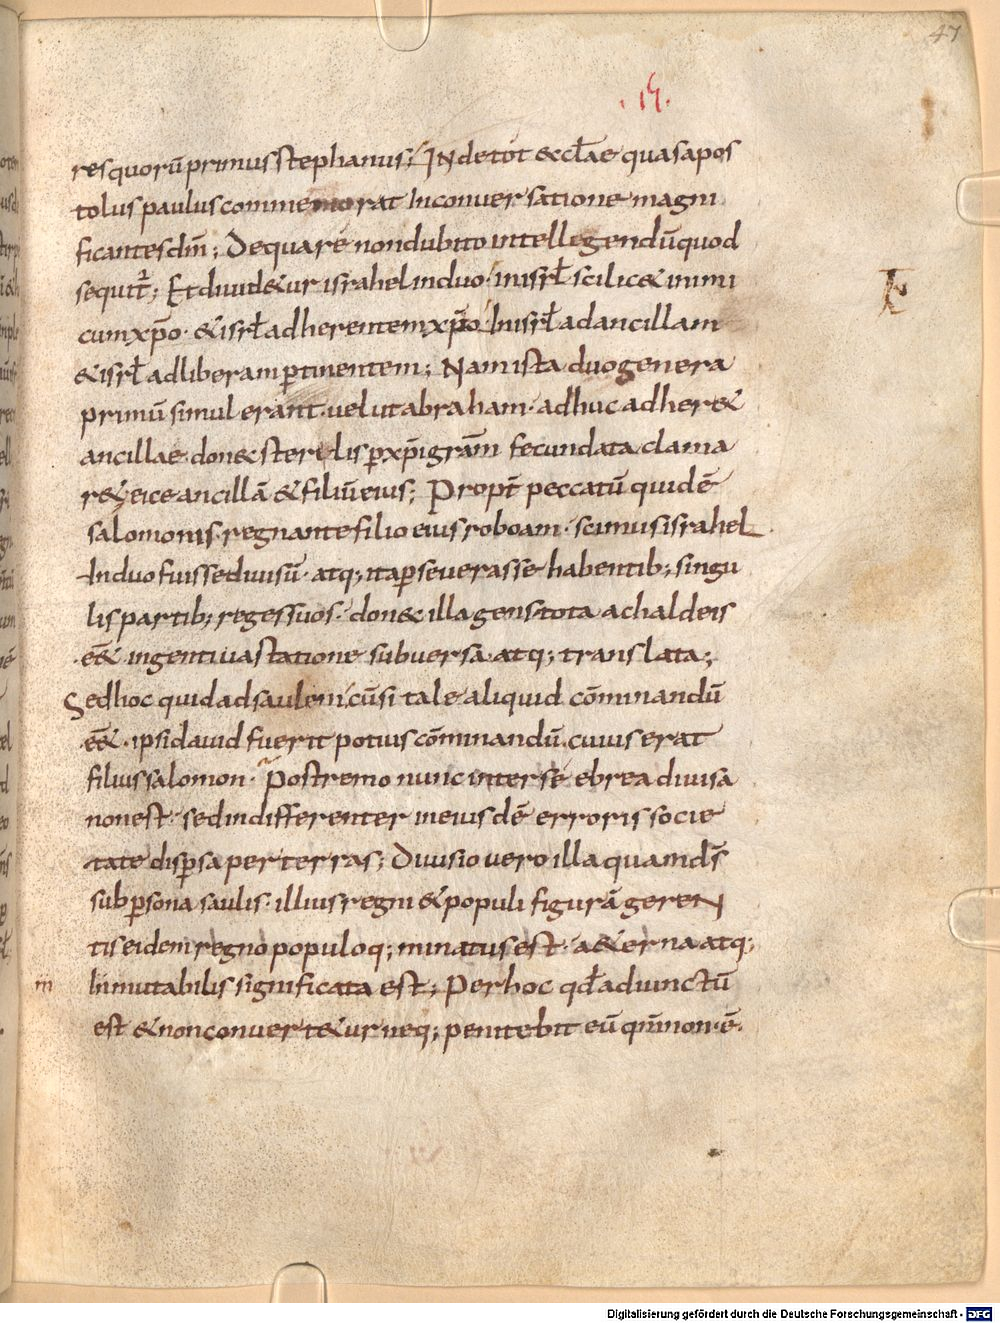 47
.15.
resquorū primus stephanus; INde tot &ccl̄ae quas apos
tolus paulus commemorat Inconuersatione magni
ficantes dm̄; De quare nondubito intellegendū quod
sequit̄; Et diuid&ur israhel induo· inisrł scilic& inimi
cum xp̄o· &isrł adherentem xp̄o· Inisrł ad ancillam
&isrł ad liberam ꝑtinentem; Nam ista duo genera
primū simul erant· uelut abraham· adhuc adher&
ancillae· don&sterilis ꝑ xp̄i grām fecundata clama
r& eice ancillā &filiū eius; Propt̄ peccatū quidē
salomonis· regnante filio eius roboam· scimus israhel
Induo fuisse diuisū· atq; ita ꝑseuerasse habentib; singu
lis partib; reges suos· don& illa gens tota achaldeis
·ēē& ingenti uastatione subuersa· atq; translata;
Sed hoc quid ad saulem· cū si tale aliquid cōminandū
·ēē&· ipsi dauid fuerit potius cōminandū· cuius erat
filius salomon· Postremo nunc inter sé ebrea diuisa
non est· sed indifferenter ineiusdē erroris socie
tate disꝑsa per terras; Diuisio uero illa quam d̄s
sub ꝑsona saulis· illius regni &populi figurā gereN
tis eidem regno populoq; minatus est· a&erna atq;
m̄
Inmutabilis significata est; Per hoc qđ adiunctū
est &non conuert&ur neq; penitebit eū qm̄ non·ē·
Digitalisierung gefördert durch die Deutsche Forschungsgemeinschaft - DFG